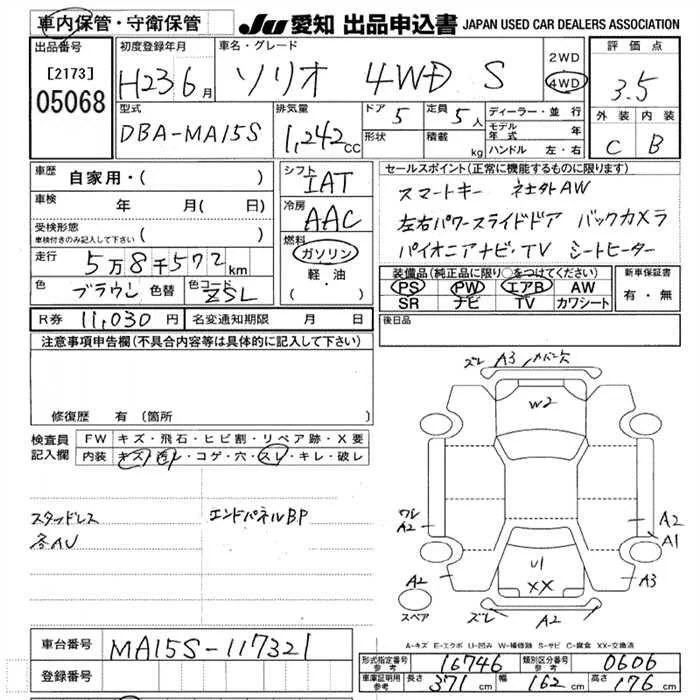 車内保管・守衛保管
JU 愛知 出品申込書 JAPAN USED CAR DEALERS ASSOCIATION
出品番号
[2173]
05068
初度登録年月
H23 6 月
車名・グレード
ソリオ 4WD S
2WD
4WD
評価点
3.5
外装 内装
C B
型式
DBA-MA15S
排気量
1,242 CC
ドア 5
定員 5 人
形状
積載 kg
ディーラー・並行
モデル年式 年
ハンドル 左・右
車歴 自家用・( )
車検 年 月( 日)
受検形態
車検付きのみ記入して下さい ( )
走行 5万8千572 km
色 ブラウン 色替
色コード ZSL
シフト IAT
冷房 AAC
燃料
ガソリン
軽・油
( )
セールスポイント(正常に機能するものに限ります)
スマートキー 社外AW
左右パワースライドドア バックカメラ
パイオニアナビ・TV シートヒーター
装備品(純正品に限り○をつけてください)
PS PW エアB AW
SR ナビ TV カワシート
新車保証書
有・無
R券 11,030 円
名変通知期限 月 日
後日品
注意事項申告欄(不具合内容等は具体的に記入して下さい)
修復歴 有(箇所
検査員記入欄
FW キズ・飛石・ヒビ割・リペア跡・X要
内装 キズ・汚レ・コゲ・穴・スレ・キレ・破レ
スタッドレス
各AU
エンドパネルBP
ズレ A3
W2
ワレ
A2
A2
A1
U1
XX
A2
A3
スペア
ズレ A2
A-キズ E-エクボ U-凹み W-補修跡 S-サビ C-腐食 XX-交換済
車台番号 MA15S-117321
登録番号
形式指定番号 参考 16746
類別区分番号 参考 0606
車庫証明用 参考
長さ 371 cm
幅 162 cm
高さ 176 cm